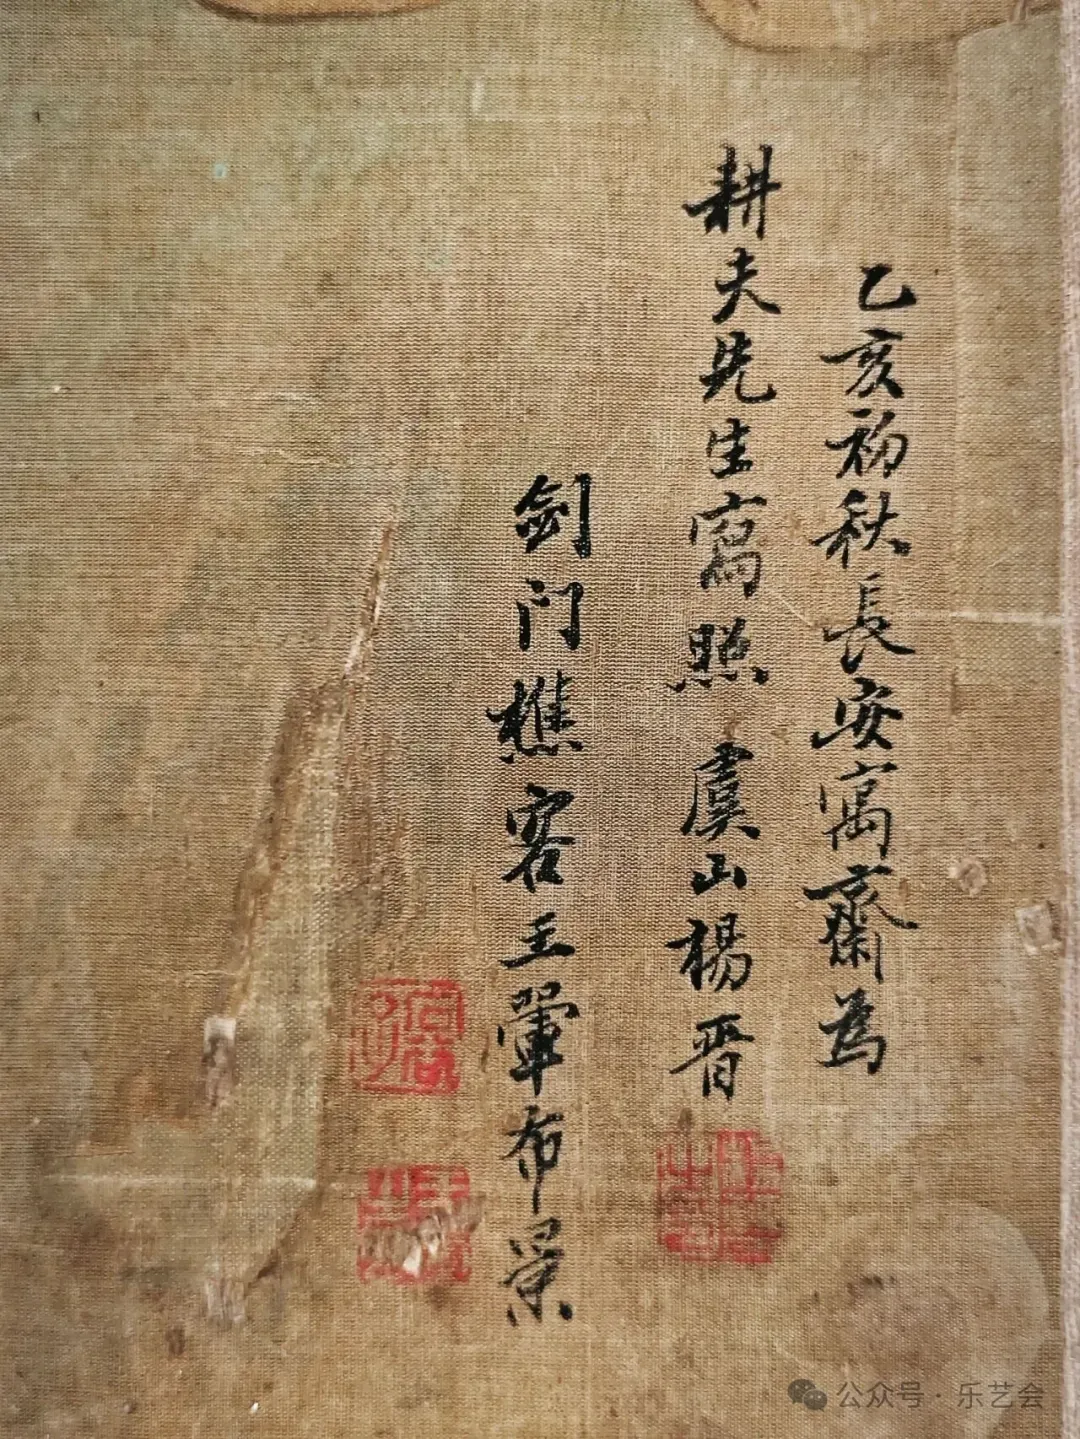 乙亥初秋長安寓齋為
耕夫先生寫照 虞山楊晋
劍门樵客王翬布景
公众号·乐艺会